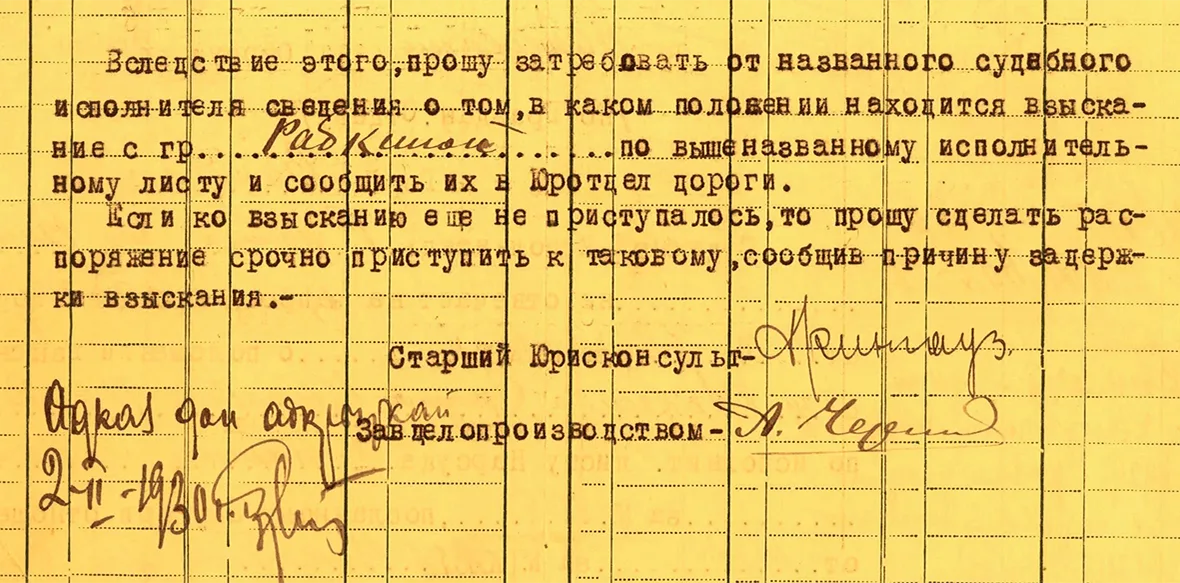 Вследствие этого,прошу затребовать от названного судебного
исполнителя сведения о том,в каком положении находится взыска-
ние с гр. Рабкиной по вышеназванному исполнитель-
ному листу и сообщить их в Юротдел дороги.
Если ко взысканию еще не приступалось,то прошу сделать рас-
поряжение срочно приступить к таковому,сообщив причину задерж-
ки взыскания.-
Старший Юрисконсульт-
Адказ дан адкрыткай
Завделопроизводством- А.
2-II-1930 г.